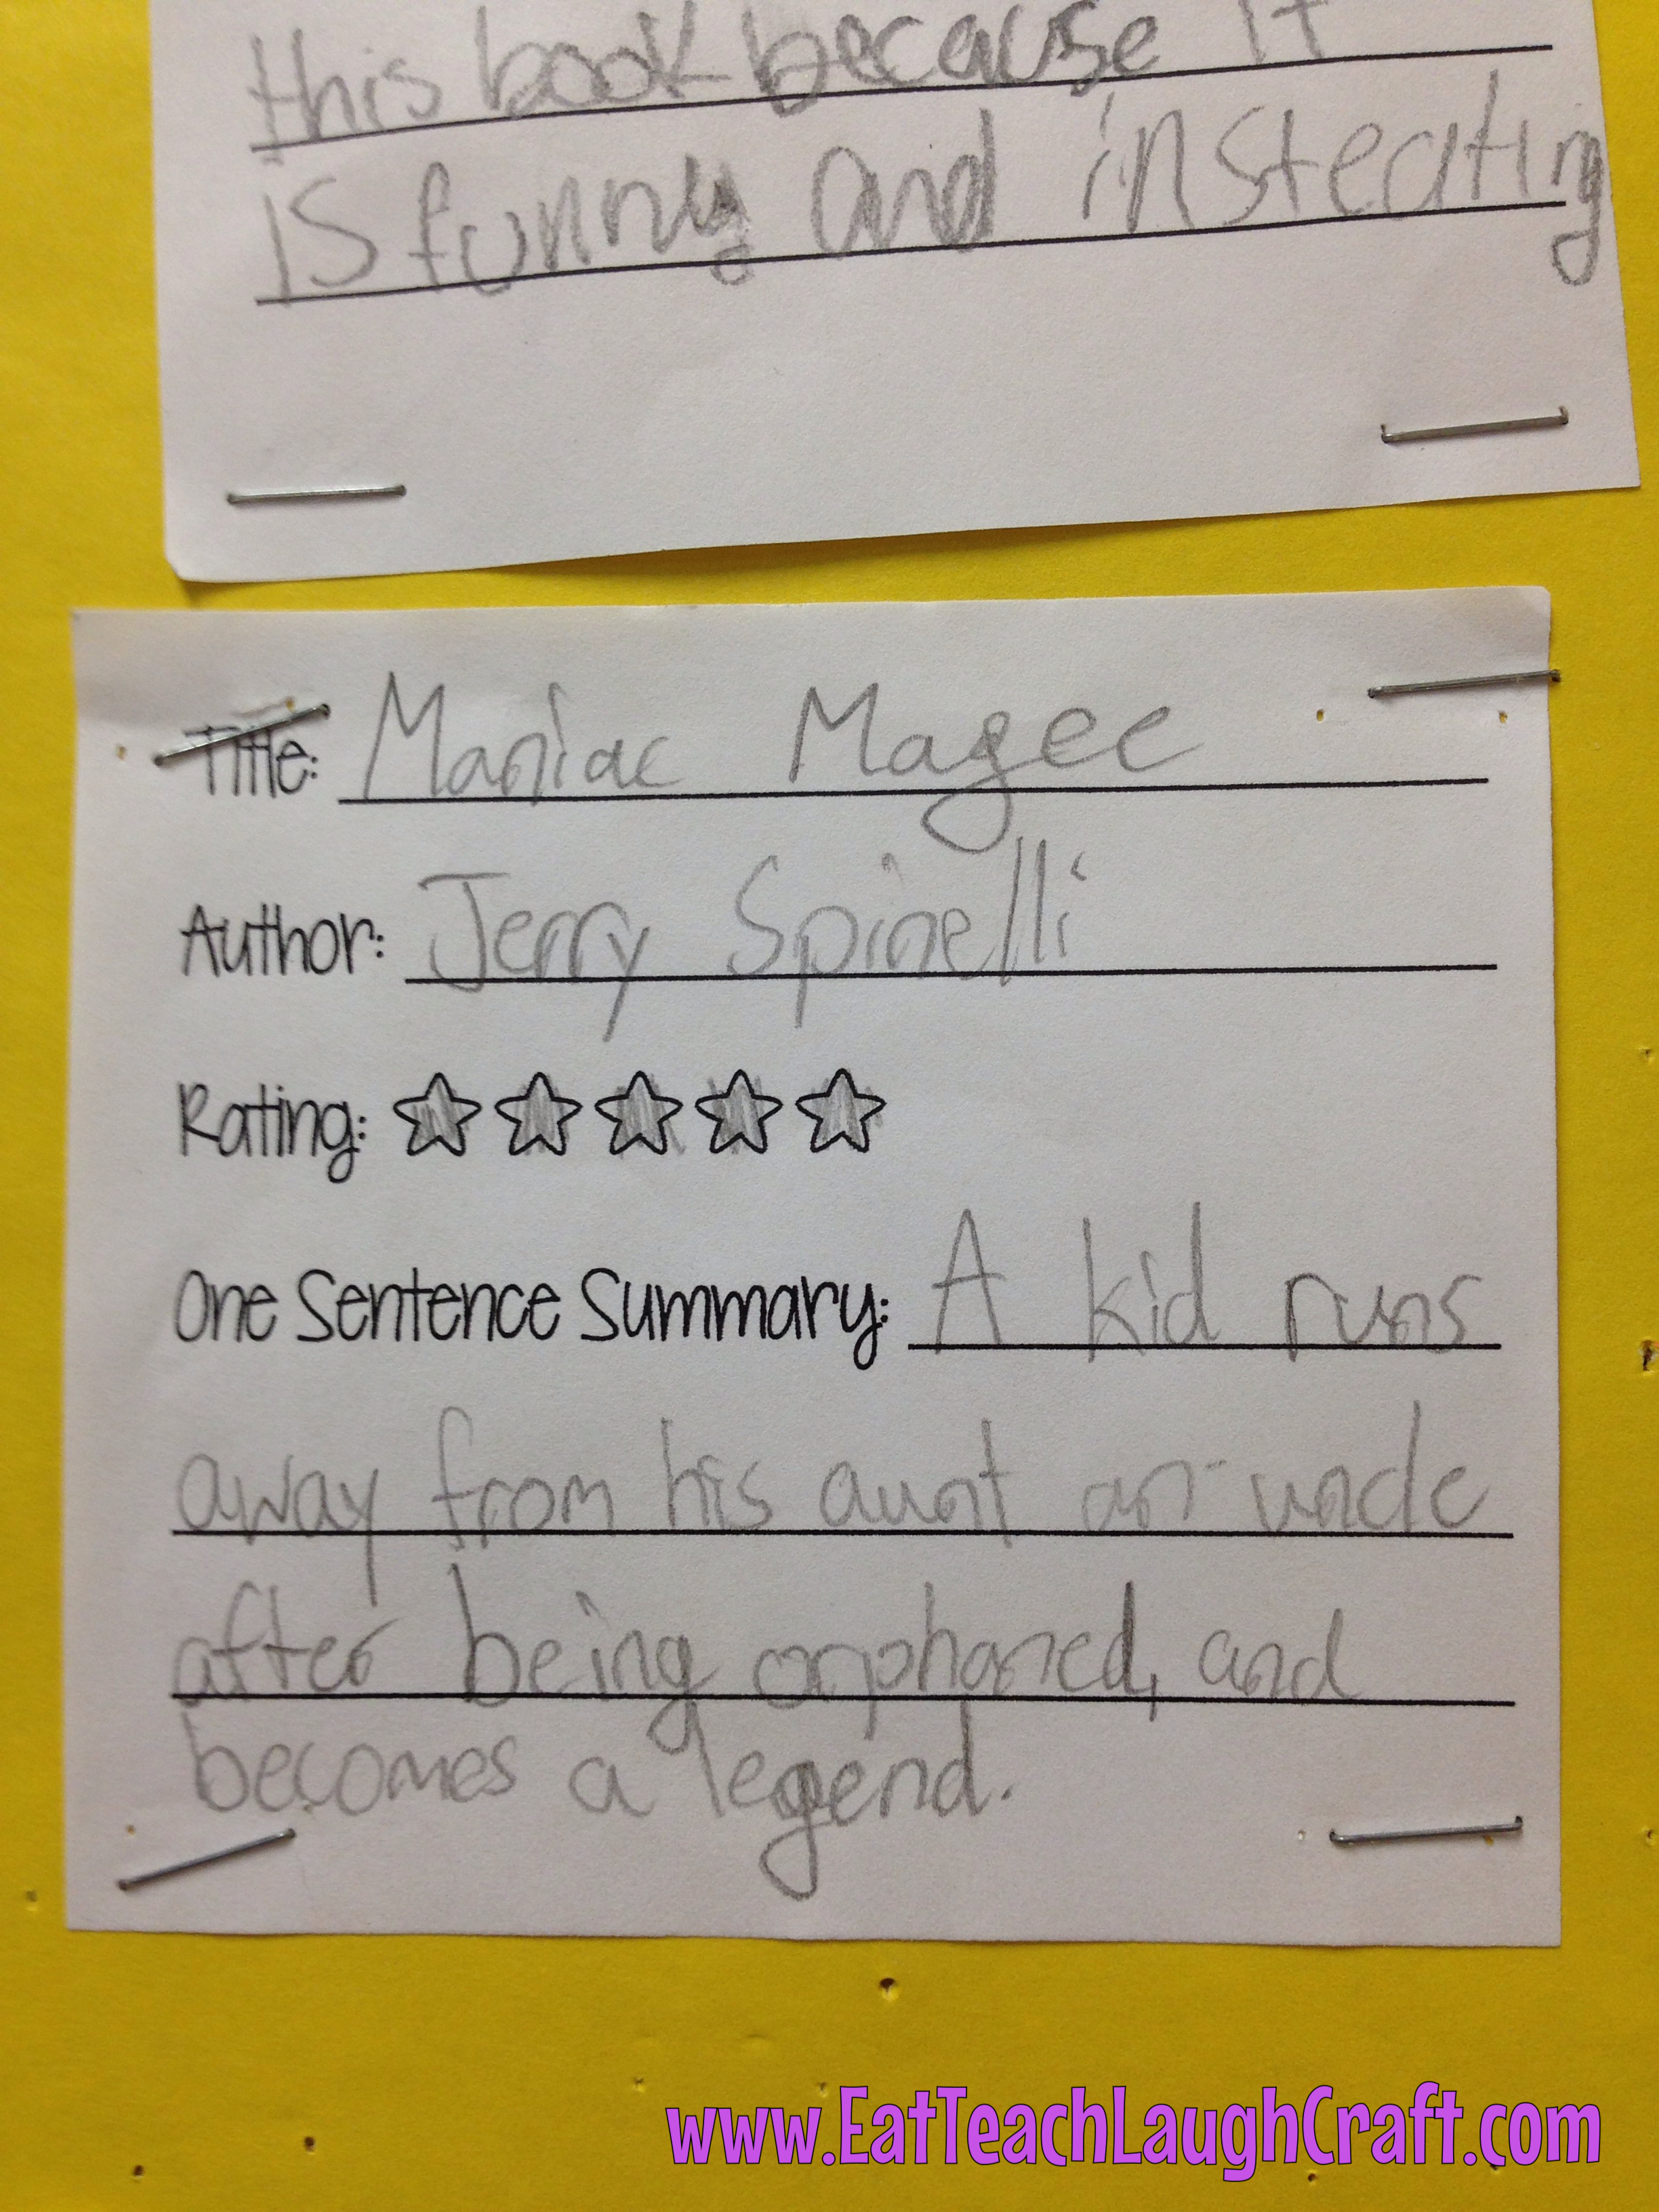 this book because it
is funny and insteating
Title: Maniac Magee
Author: Jerry Spinelli
Rating:
One Sentence Summary: A kid runs
away from his aunt an uncle
after being orphaned, and
becomes a legend.
www.EatTeachLaughCraft.com